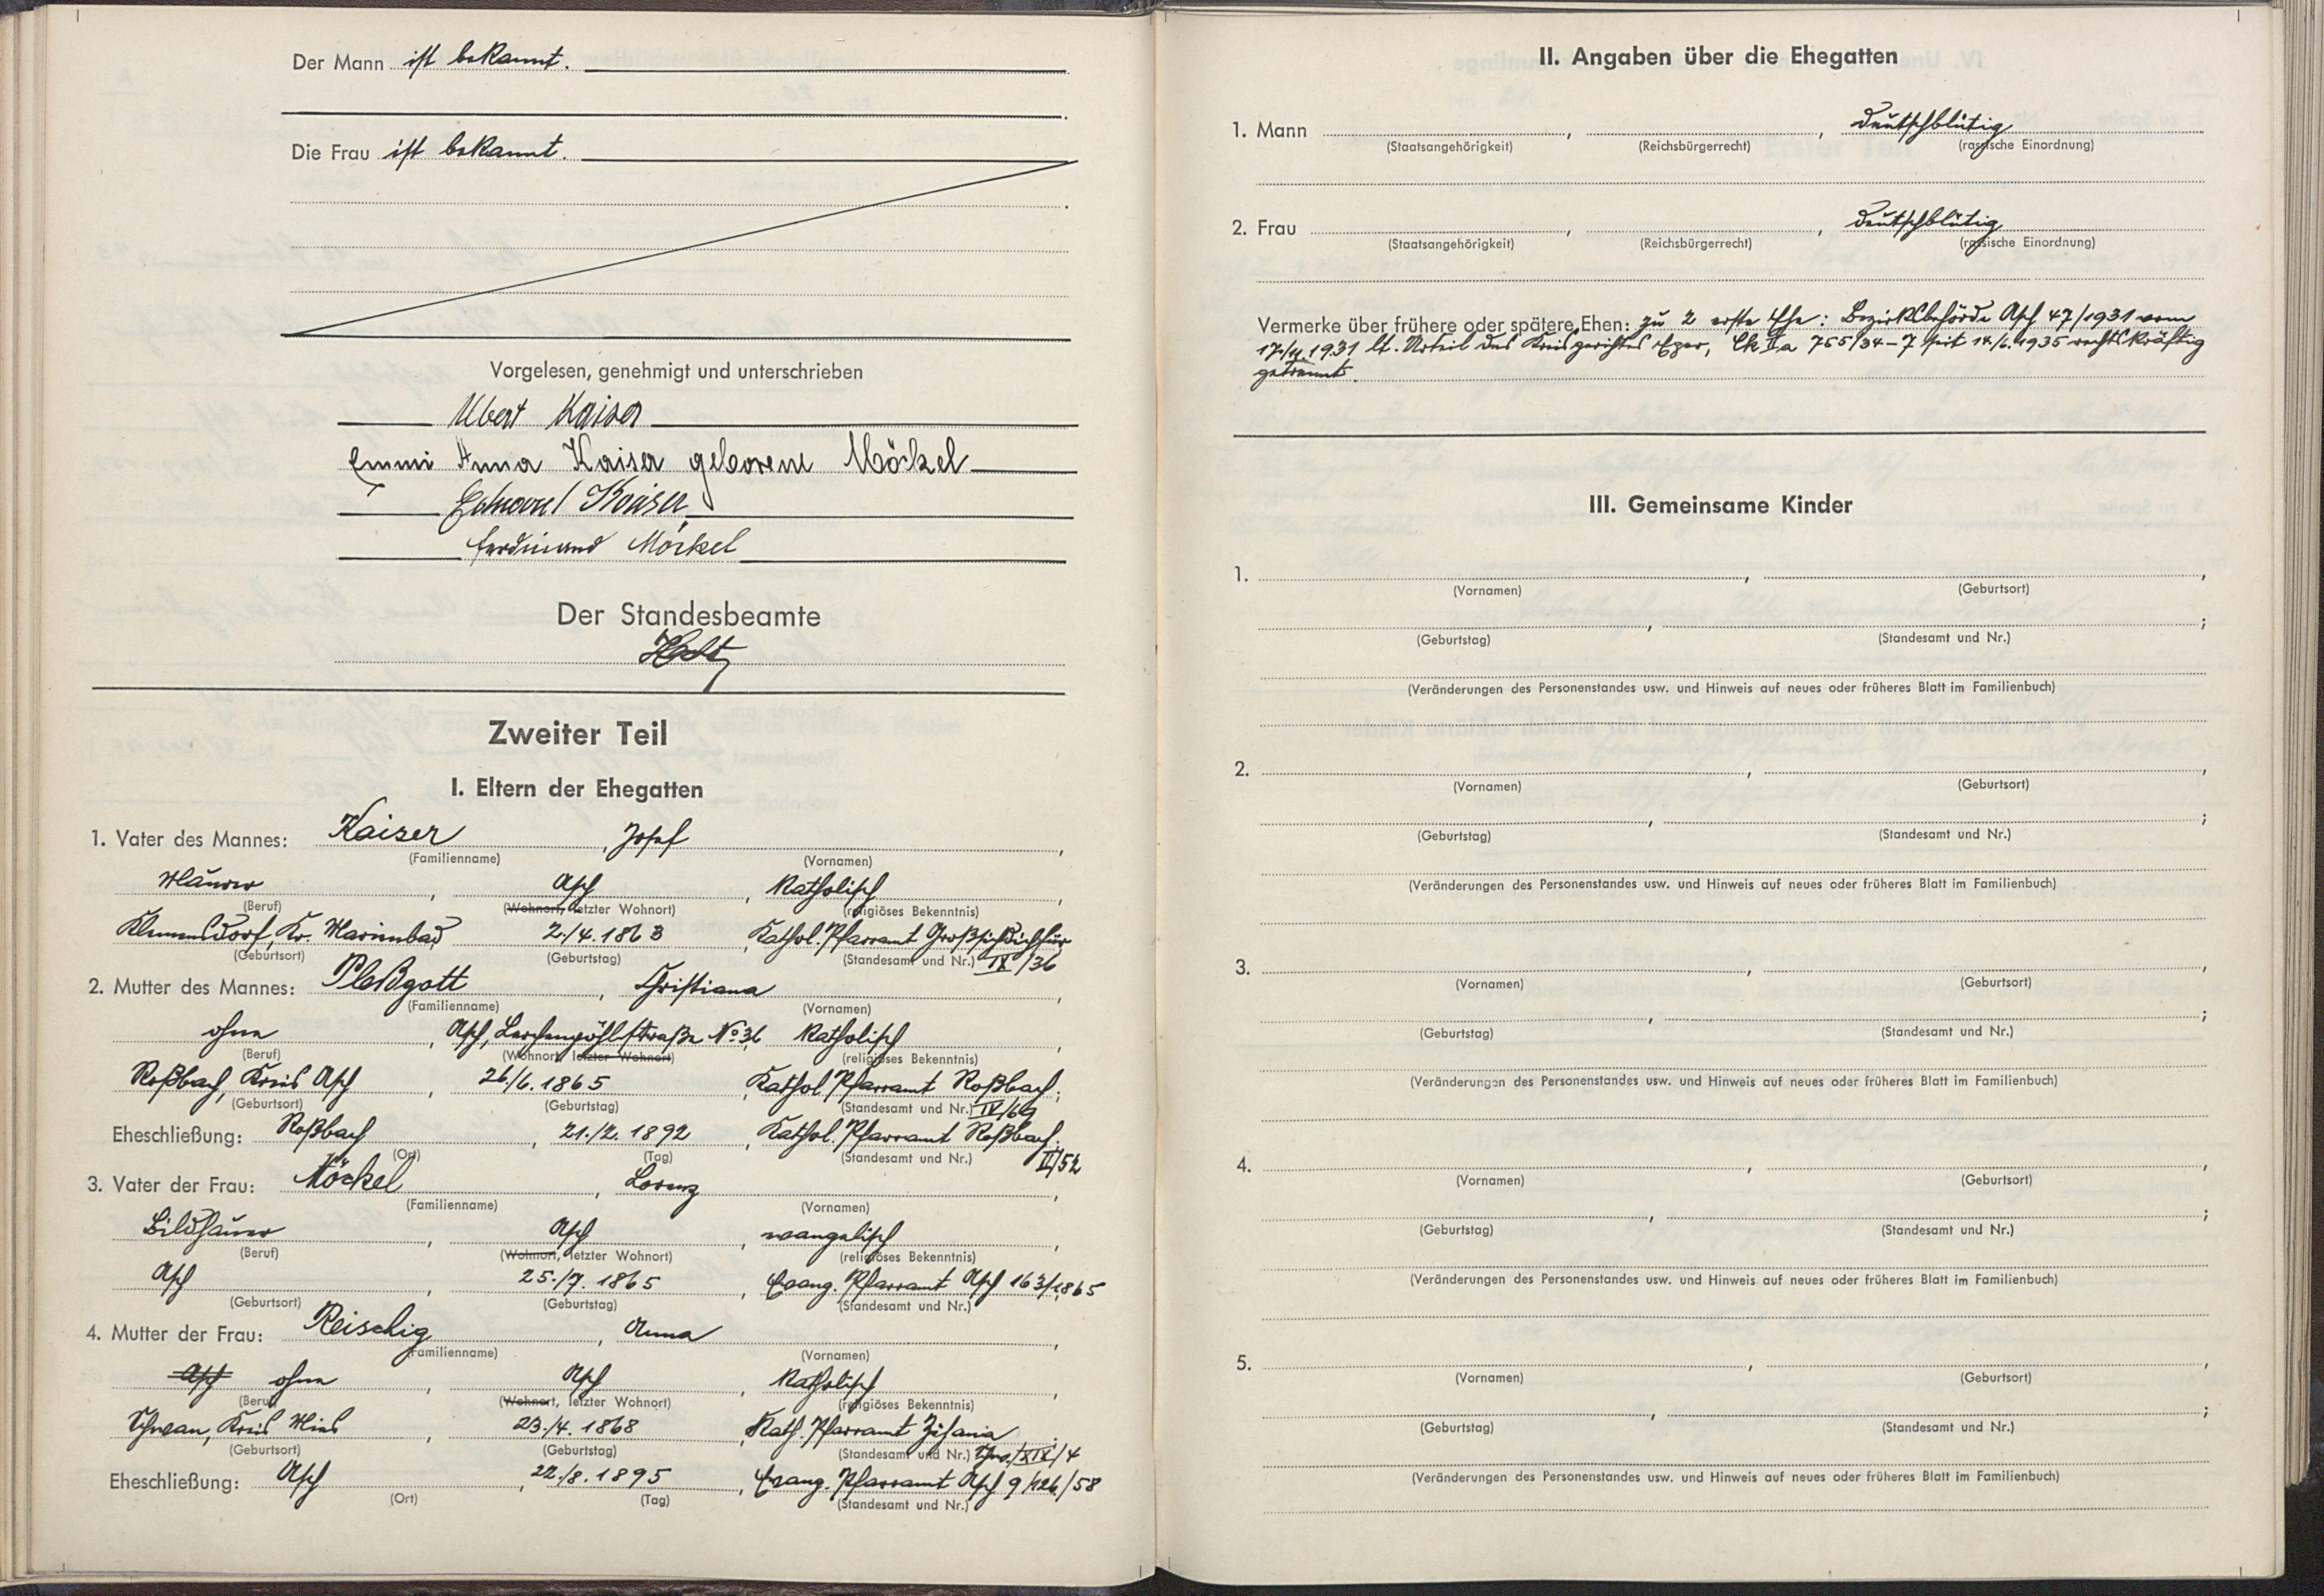 Der Mann ist bekannt.
Die Frau ist bekannt.
Vorgelesen, genehmigt und unterschrieben
Albert Kaiser
Emmi Anna Kaiser geborene Möckel
Eduard Kaiser
Ferdinand Möckel
Der Standesbeamte
Zweiter Teil
I. Eltern der Ehegatten
1. Vater des Mannes: Kaiser, Josef,
(Familienname) (Vornamen)
Maurer, Asch, katholisch,
(Beruf) (Wohnort, letzter Wohnort) (religiöses Bekenntnis)
Klemensdorf, Kr. Marienbad, 2./4. 1863, Kathol. Pfarramt
(Geburtsort) (Geburtstag) (Standesamt und Nr.) IX/36
2. Mutter des Mannes: Pleßgott, Christiana,
(Familienname) (Vornamen)
ohne, Asch, Lerchenpöhlstraße No 36, katholisch,
(Beruf) (Wohnort, letzter Wohnort) (religiöses Bekenntnis)
Roßbach, Kreis Asch, 26./6. 1865, Kathol. Pfarramt Roßbach;
(Geburtsort) (Geburtstag) (Standesamt und Nr.) IV/69
Eheschließung: Roßbach, 21./2. 1892, Kathol. Pfarramt Roßbach.
(Ort) (Tag) (Standesamt und Nr.) II/52
3. Vater der Frau: Möckel, Lorenz,
(Familienname) (Vornamen)
Bildhauer, Asch, evangelisch,
(Beruf) (Wohnort, letzter Wohnort) (religiöses Bekenntnis)
Asch, 25./7. 1865, Evang. Pfarramt Asch 163/1865
(Geburtsort) (Geburtstag) (Standesamt und Nr.)
4. Mutter der Frau: Reischig, Anna,
(Familienname) (Vornamen)
Asch ohne, Asch, katholisch,
(Beruf) (Wohnort, letzter Wohnort) (religiöses Bekenntnis)
Kreis Mies, 23./4. 1868, Kath. Pfarramt
(Geburtsort) (Geburtstag) (Standesamt und Nr.) XIX/4
Eheschließung: Asch, 22./8. 1895, Evang. Pfarramt Asch 9/126./58
(Ort) (Tag) (Standesamt und Nr.)
II. Angaben über die Ehegatten
1. Mann , , deutschblütig
(Staatsangehörigkeit) (Reichsbürgerrecht) (rassische Einordnung)
2. Frau , , deutschblütig
(Staatsangehörigkeit) (Reichsbürgerrecht) (rassische Einordnung)
Vermerke über frühere oder spätere Ehen: zu 2 erste Ehe: Bezirksbehörde Asch 47/1931 vom
1931 lt. Urteil des Kreisgerichtes Eger, Ck Ia 755/34-7 seit 14./6. 1935 rechtskräftig
getrennt.
III. Gemeinsame Kinder
1. , ,
(Vornamen) (Geburtsort)
, ;
(Geburtstag) (Standesamt und Nr.)
(Veränderungen des Personenstandes usw. und Hinweis auf neues oder früheres Blatt im Familienbuch)
2. , ,
(Vornamen) (Geburtsort)
, ;
(Geburtstag) (Standesamt und Nr.)
(Veränderungen des Personenstandes usw. und Hinweis auf neues oder früheres Blatt im Familienbuch)
3. , ,
(Vornamen) (Geburtsort)
, ;
(Geburtstag) (Standesamt und Nr.)
(Veränderungen des Personenstandes usw. und Hinweis auf neues oder früheres Blatt im Familienbuch)
4. , ,
(Vornamen) (Geburtsort)
, ;
(Geburtstag) (Standesamt und Nr.)
(Veränderungen des Personenstandes usw. und Hinweis auf neues oder früheres Blatt im Familienbuch)
5. , ,
(Vornamen) (Geburtsort)
, ;
(Geburtstag) (Standesamt und Nr.)
(Veränderungen des Personenstandes usw. und Hinweis auf neues oder früheres Blatt im Familienbuch)